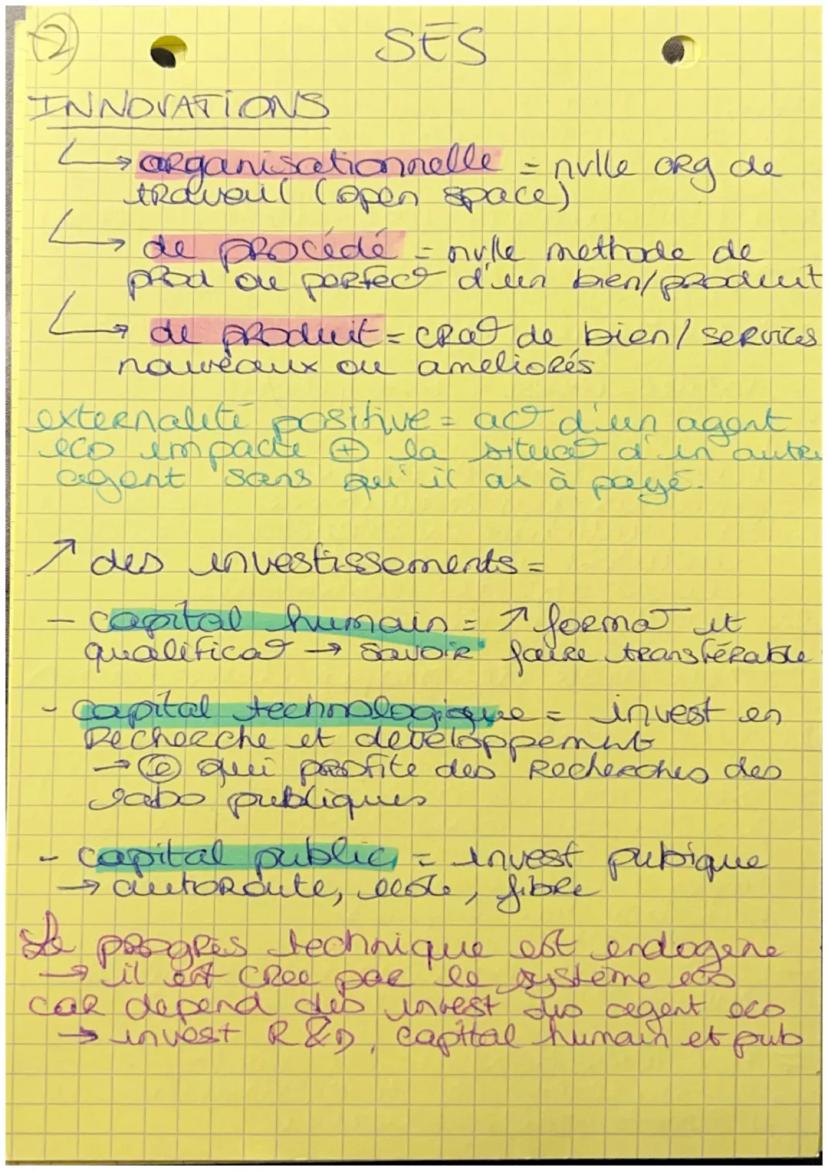 2 SES
INNOVATIONS
↳ organisationnelle = nvlle org de
travail (open space)
↳ de procédé = nvlle methode de
prod° ou perfect° d'un bien/produit
↳ de produit = crea° de bien/services
nouveaux ou ameliorés
externalité positive = act° d'un agent
eco impacte ⊕ la situat° d'un autre
agent sans qu'il ai à payé.
↗ des investissements =
- capital humain = ↗ format° et
qualificat° → savoir faire transférable
- capital technologique = invest en
Recherche et developpement
→ © qui profite des Recherches des
labo publiques
- capital public = invest pubique
→ autoroute, ecole, fibre
Le progrès technique est endogene
→ il est créé par le système eco
car depend des invest des agent eco
→ invest R&D, capital humain et pub